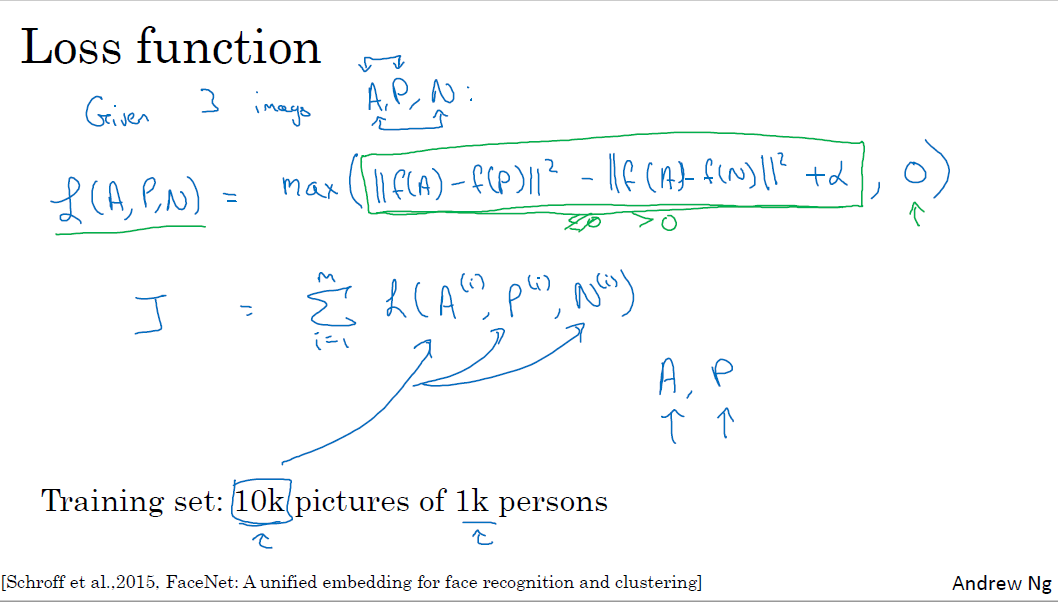 Loss function
Given 3 images A, P, N:
ℒ(A, P, N) = max(‖f(A) − f(P)‖² − ‖f(A) − f(N)‖² + α, 0)
≤0 >0
J = Σ_{i=1}^{m} ℒ(A^{(i)}, P^{(i)}, N^{(i)})
A, P
Training set: 10k pictures of 1k persons
[Schroff et al.,2015, FaceNet: A unified embedding for face recognition and clustering]
Andrew Ng